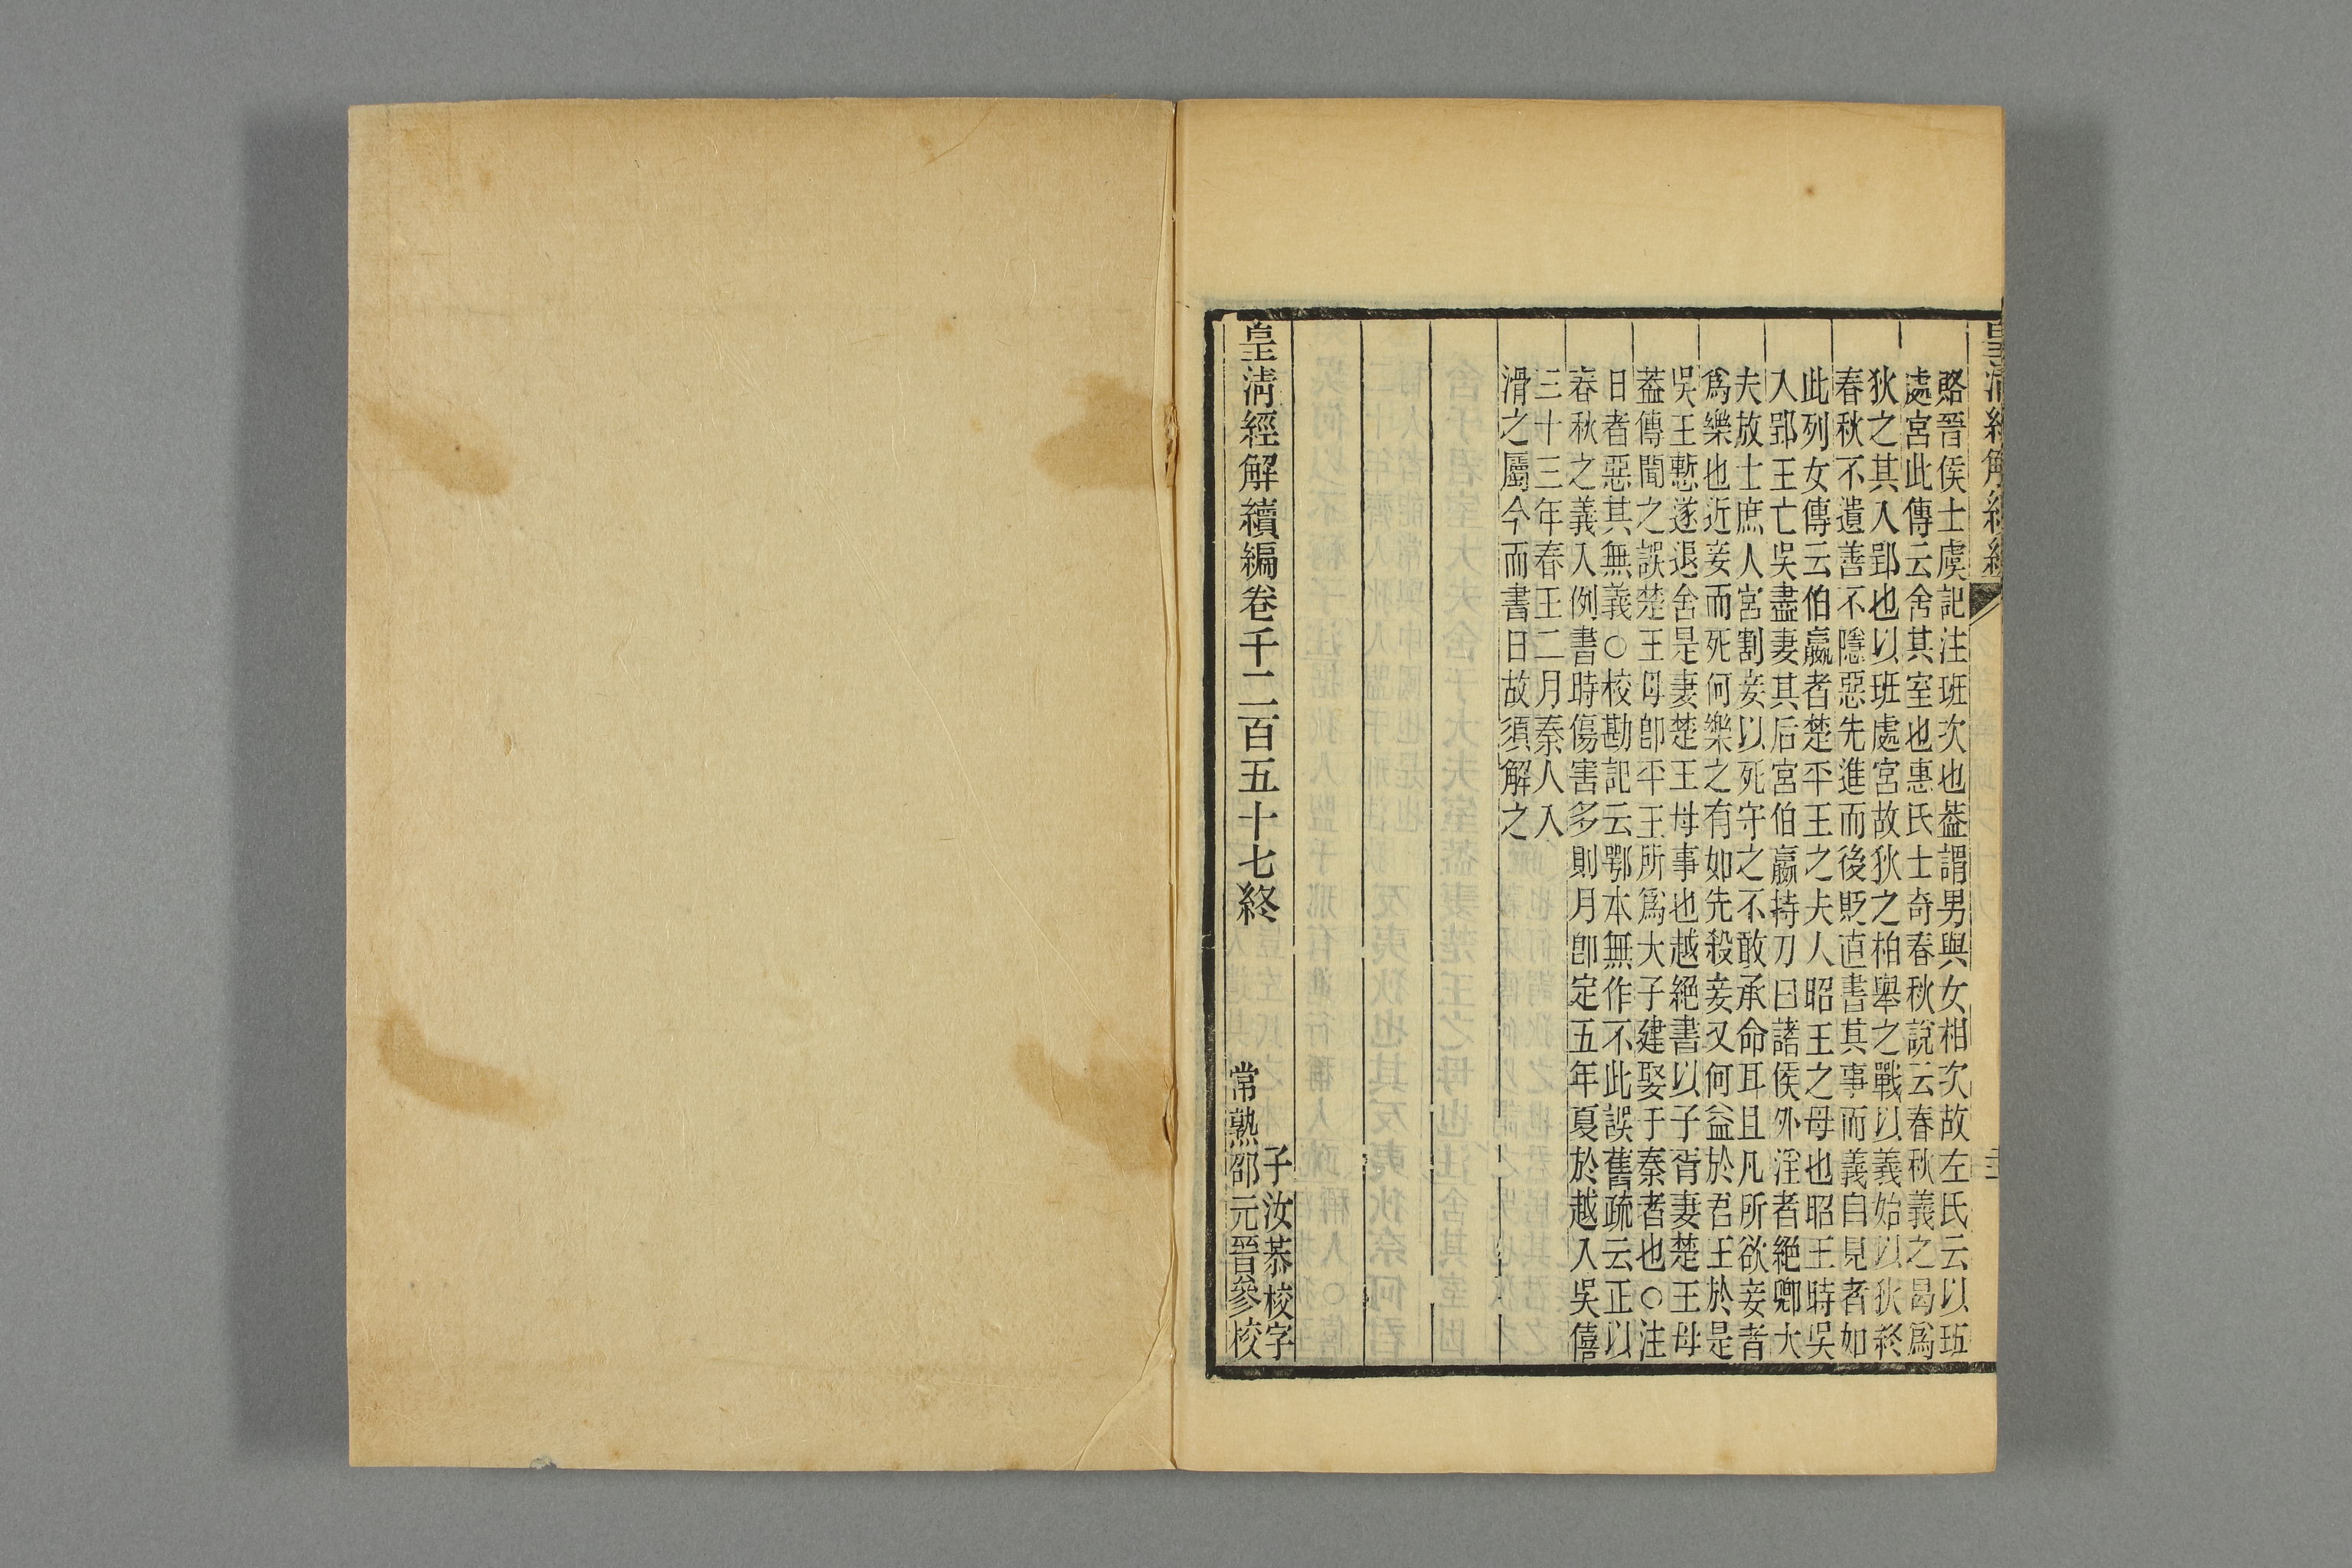 賂晉侯士虔記注班次也葢謂男與女相次故左氏云以班
處宮此傳云舍其室也惠氏士奇春秋說云春秋義之曷爲
狄之其入郢也以班處宮故狄之柏舉之戰以義始以狄終
春秋不遺善不隱惡先進而後貶直書其事而義自見者如
此列女傳云伯嬴者楚平王之夫人昭王之母也昭王時吳
入郢王亡吳盡妻其后宮伯嬴持刀曰諸侯外淫者絕卿大
夫放士庶人宮割妾以死守之不敢承命耳且凡所欲妾者
爲樂也近妾而死何樂之有如先殺妾又何益於君王於是
吳王慙遂退舍是妻楚王母事也越絕書以子胥妻楚王母
葢傳聞之誤楚王母卽平王所爲大子建娶于秦者也○注
日者惡其無義○校勘記云鄂本無作不此誤舊疏云正以
春秋之義入例書時傷害多則月卽定五年夏於越入吳僖
三十三年春王二月秦人入
滑之屬今而書日故須解之
皇清經解續編卷千二百五十七終
子汝恭校字
常熟邵元晉參校